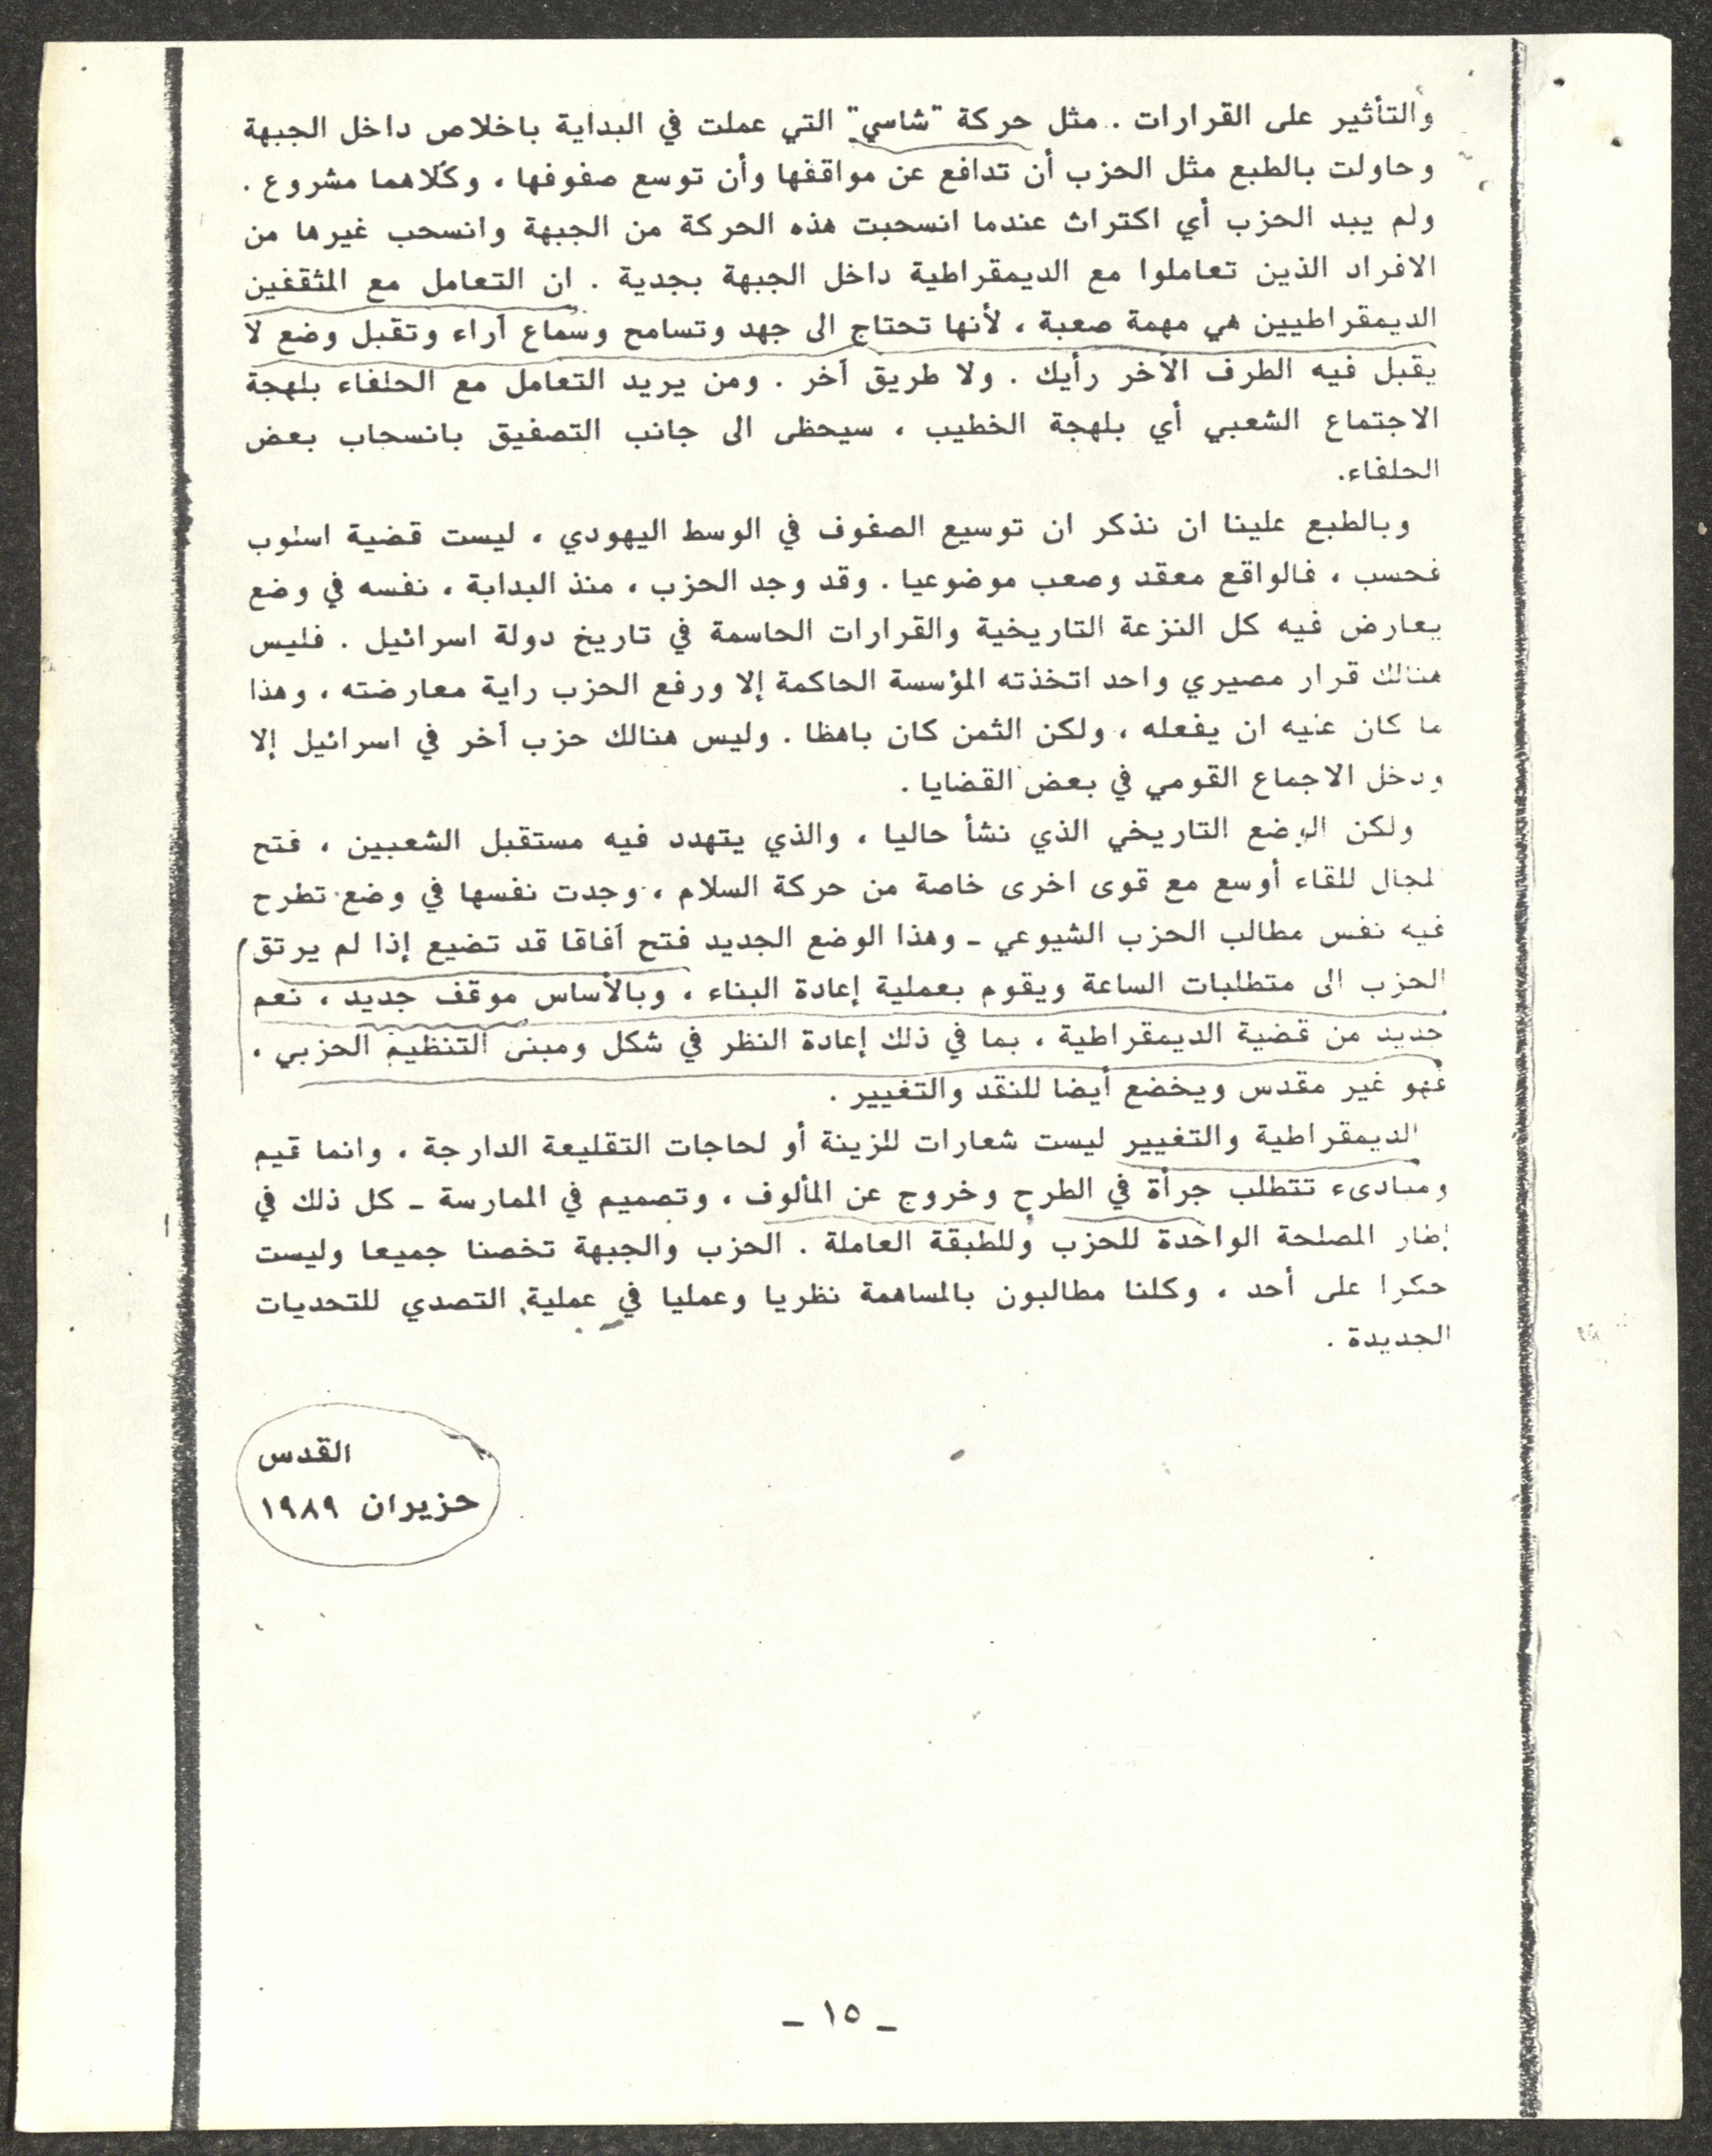 والتأثير على القرارات . مثل حركة "شاسي" التي عملت في البداية باخلاص داخل الجبهة
وحاولت بالطبع مثل الحزب أن تدافع عن مواقفها وأن توسع صفوفها ، وكلاهما مشروع .
ولم يبد الحزب أي اكتراث عندما انسحبت هذه الحركة من الجبهة وانسحب غيرها من
الافراد الذين تعاملوا مع الديمقراطية داخل الجبهة بجدية . ان التعامل مع المثقفين
الديمقراطيين هي مهمة صعبة ، لأنها تحتاج الى جهد وتسامح وسماع آراء وتقبل وضع لا
يقبل فيه الطرف الآخر رأيك . ولا طريق آخر . ومن يريد التعامل مع الحلفاء بلهجة
الاجتماع الشعبي أي بلهجة الخطيب ، سيحظى الى جانب التصفيق بانسحاب بعض
الحلفاء.
وبالطبع علينا ان نذكر ان توسيع الصفوف في الوسط اليهودي ، ليست قضية اسلوب
فحسب ، فالواقع معقد وصعب موضوعيا . وقد وجد الحزب ، منذ البداية ، نفسه في وضع
يعارض فيه كل النزعة التاريخية والقرارات الحاسمة في تاريخ دولة اسرائيل . فليس
هنالك قرار مصيري واحد اتخذته المؤسسة الحاكمة إلا ورفع الحزب راية معارضته ، وهذا
ما كان عليه ان يفعله ، ولكن الثمن كان باهظا . وليس هنالك حزب آخر في اسرائيل إلا
ودخل الاجماع القومي في بعض القضايا .
ولكن الوضع التاريخي الذي نشأ حاليا ، والذي يتهدد فيه مستقبل الشعبين ، فتح
لمجال للقاء أوسع مع قوى اخرى خاصة من حركة السلام ، وجدت نفسها في وضع تطرح
فيه نفس مطالب الحزب الشيوعي ـ وهذا الوضع الجديد فتح آفاقا قد تضيع إذا لم يرتق
الحزب الى متطلبات الساعة ويقوم بعملية إعادة البناء ، وبالأساس موقف جديد ، نعم
جديد من قضية الديمقراطية ، بما في ذلك إعادة النظر في شكل ومبنى التنظيم الحزبي ،
فهو غير مقدس ويخضع أيضا للنقد والتغيير .
الديمقراطية والتغيير ليست شعارات للزينة أو لحاجات التقليعة الدارجة ، وانما قيم
ومبادىء تتطلب جرأة في الطرح وخروج عن المألوف ، وتصميم في الممارسة ـ كل ذلك في
إطار المصلحة الواحدة للحزب وللطبقة العاملة . الحزب والجبهة تخصنا جميعا وليست
حكرا على أحد ، وكلنا مطالبون بالمساهمة نظريا وعمليا في عملية التصدي للتحديات
الجديدة .
القدس
حزيران ١٩٨٩
ـ ١٥ ـ